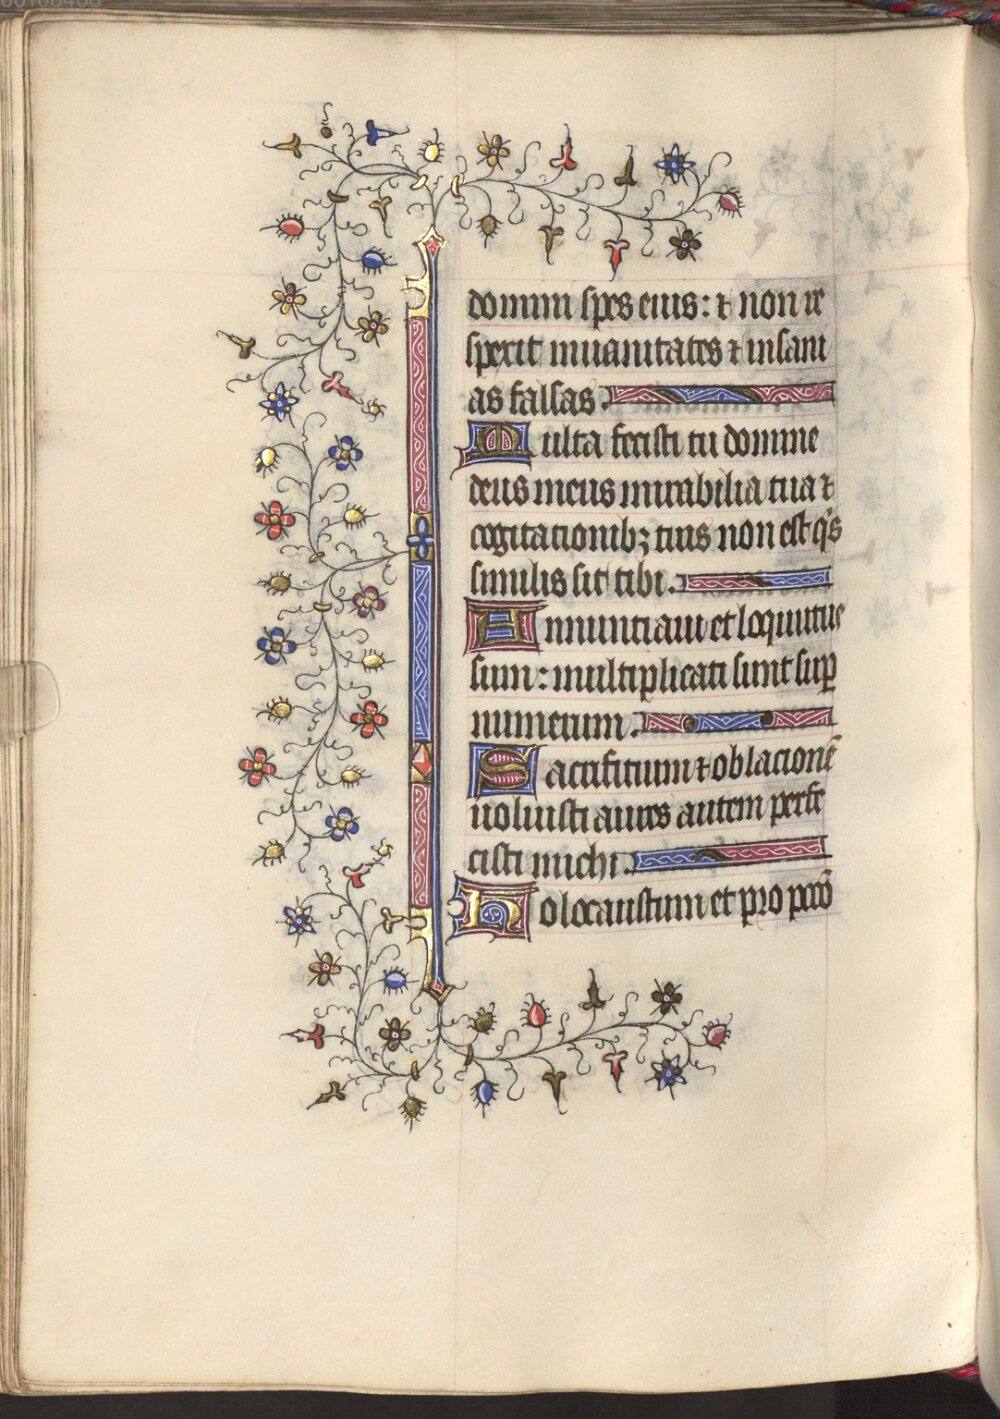 00108468
domini spes eius: ⁊ non re
spexit in uanitates ⁊ insani
as falsas.
Multa fecisti tu domine
deus meus mirabilia tua ⁊
cogitationibꝫ tuis non est q̇s
similis sit tibi.
Annunciaui et loquutus
sum: multiplicati sunt suꝑ
numerum.
Sacrificium ⁊ oblacionē
noluisti aures autem perfe
cisti michi.
Holocaustum et pro pccō